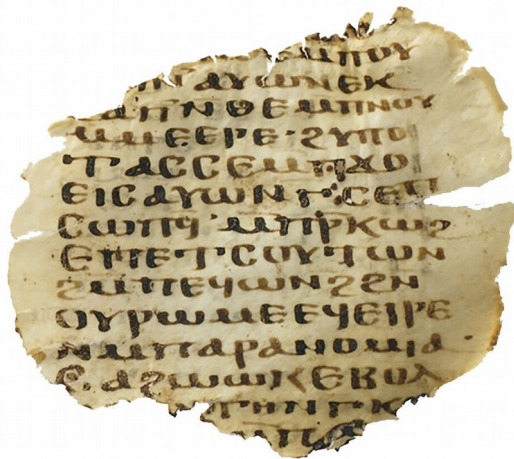 ⲙⲡⲟⲩ
ⲁⲩⲱⲛⲉⲕ
ϩⲁⲡⲛⲑⲉⲙⲡⲛⲟⲩ
ⲙⲙⲉⲉⲣⲉ·ϩⲩⲡⲟ
ⲧⲁⲥⲥⲉⲙⲡϫⲟ
ⲉⲓⲥⲁⲩⲱⲛⲅ·ⲥⲉⲡ
ⲥⲱⲡϥ·ⲙⲡⲣⲕⲱϩ
ⲉⲡⲉⲧⲥⲟⲩⲧⲱⲛ
ϩⲙⲡⲉϥⲱⲛϩϩⲛ
ⲟⲩⲣⲱⲙⲉⲉϥⲉⲓⲣⲉ
ⲛⲙⲡⲁⲣⲁⲛⲟⲙⲓⲁ·
ϭⲁϩⲱⲱⲕⲉⲃⲟⲗ